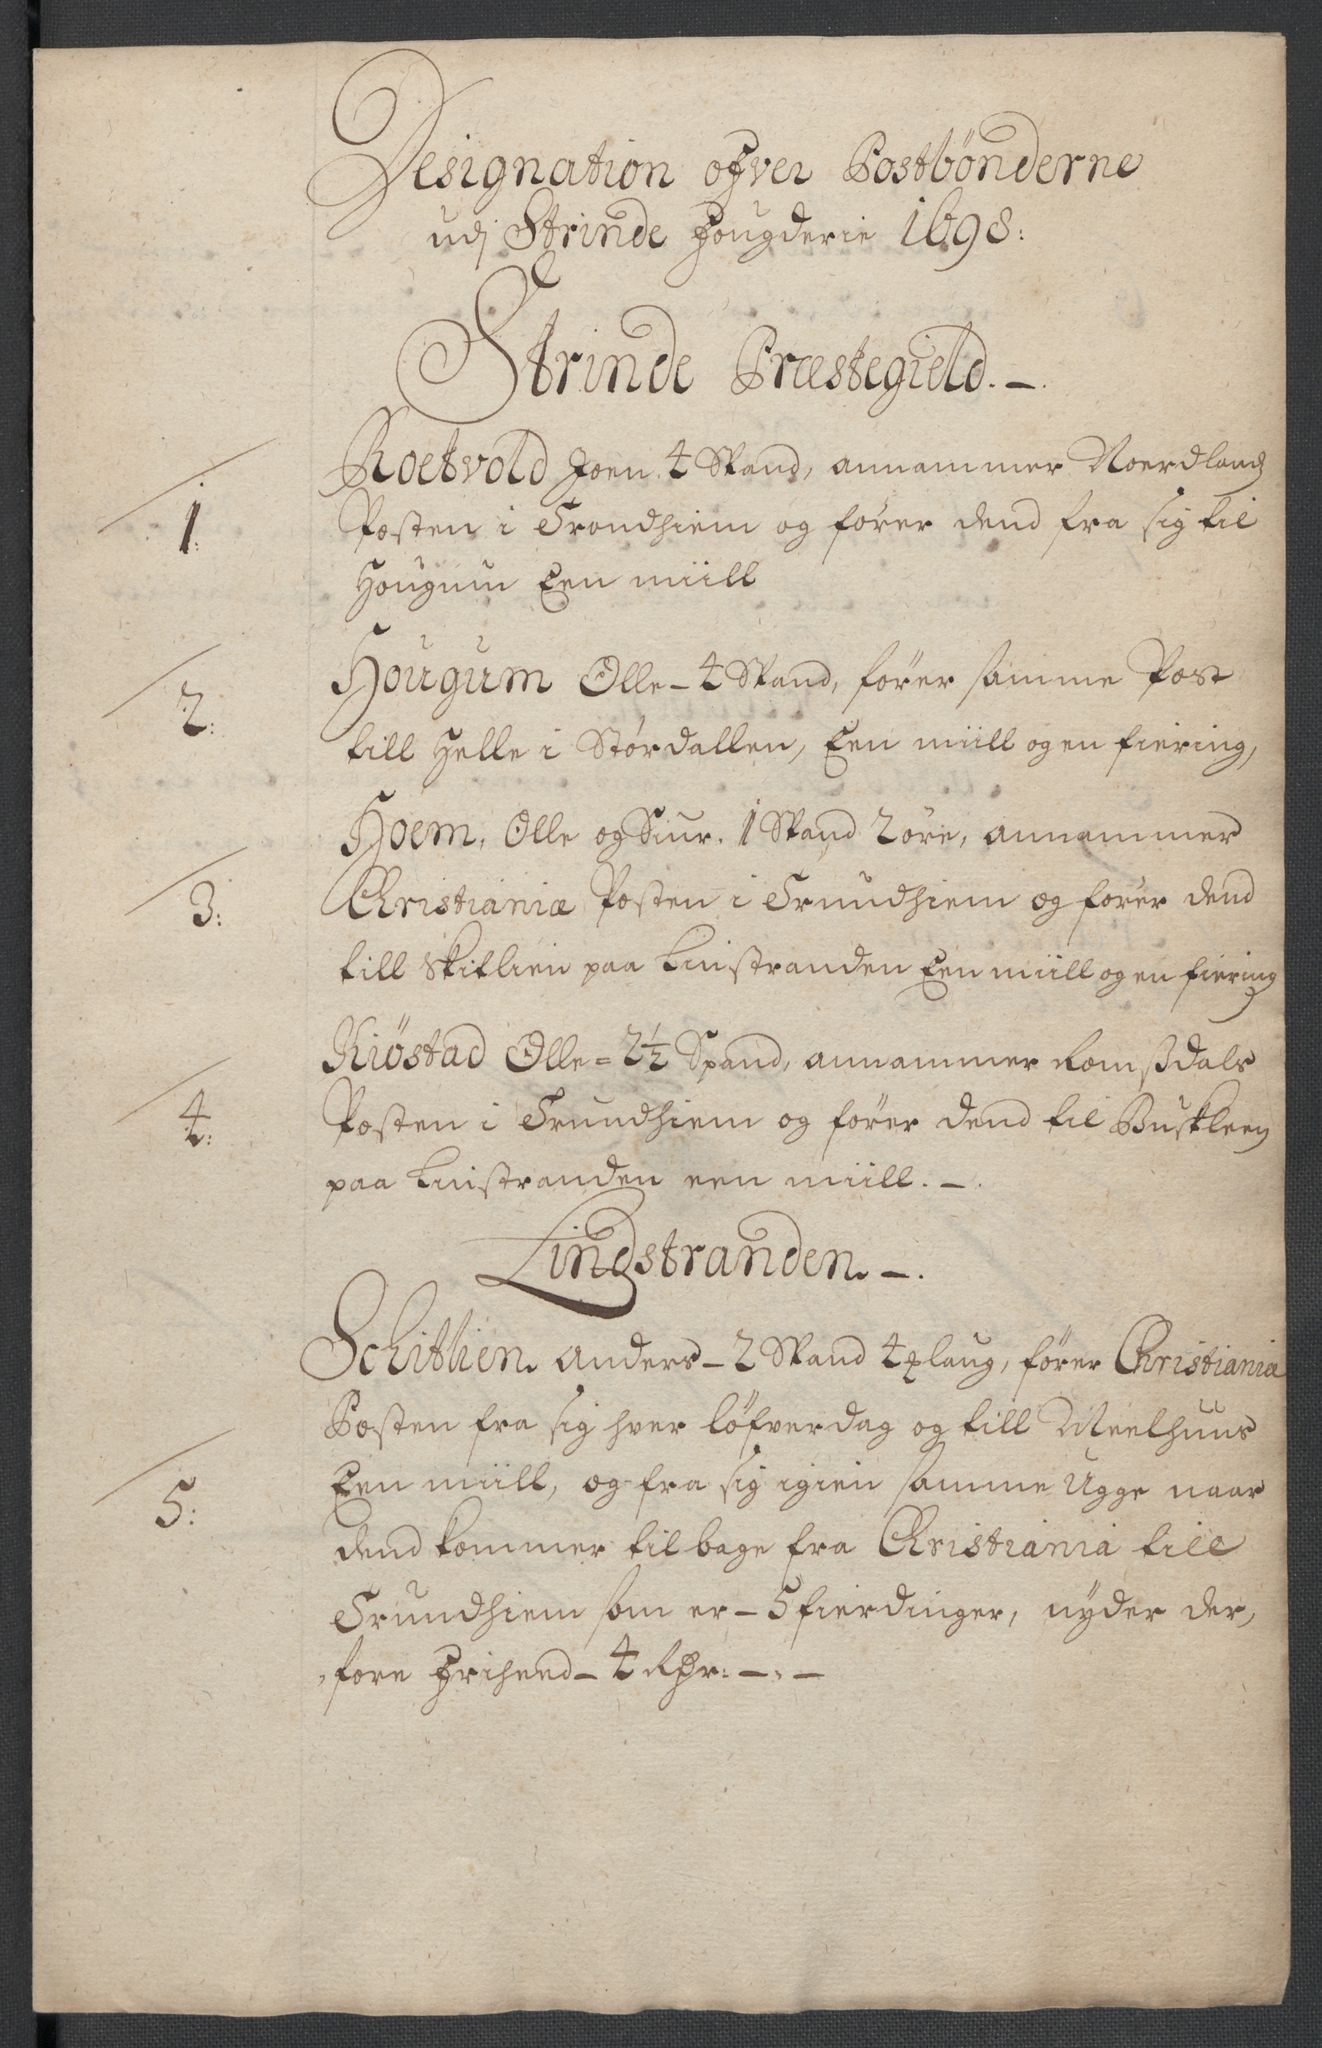 Designation ofver Postbönderne
udj Strinde Fougderie 1698:
Strinde Præstegield. –.
1. Roetvold Joen. 4 Spand, annammer Noerdlands
Posten i Trondhiem og fører dend fra sig til
Hougum Een miill
2: Hougum Olle – 4 Spand, fører samme Post
till Helle i Størdallen, Een miill og en fiering,
3: Hoem, Olle og Siur. 1 Spand 2 öre, annammer
Christianiæ Posten i Trundhiem og fører dend
till Skitlien paa Leinstranden Een miill og en fiering
4: Kiöstad Olle = 2½ Spand, annammer Romßdals
Posten i Trundhiem og fører dend til Buskleen
paa Leinstranden een miill. –.
Lindstranden. –.
5: Schitlien. Anders – 2 Spand 4 plaug, fører Christiania
Posten fra sig hver löfverdag og till Meelhuus
Een miill, og fra sig igien samme Ugge naar
dend kommer tilbage fra Christiania till
Trundhiem som er – 5 fierdinger, nyder der,
,fore Friheed – 4 Rdr: –. –